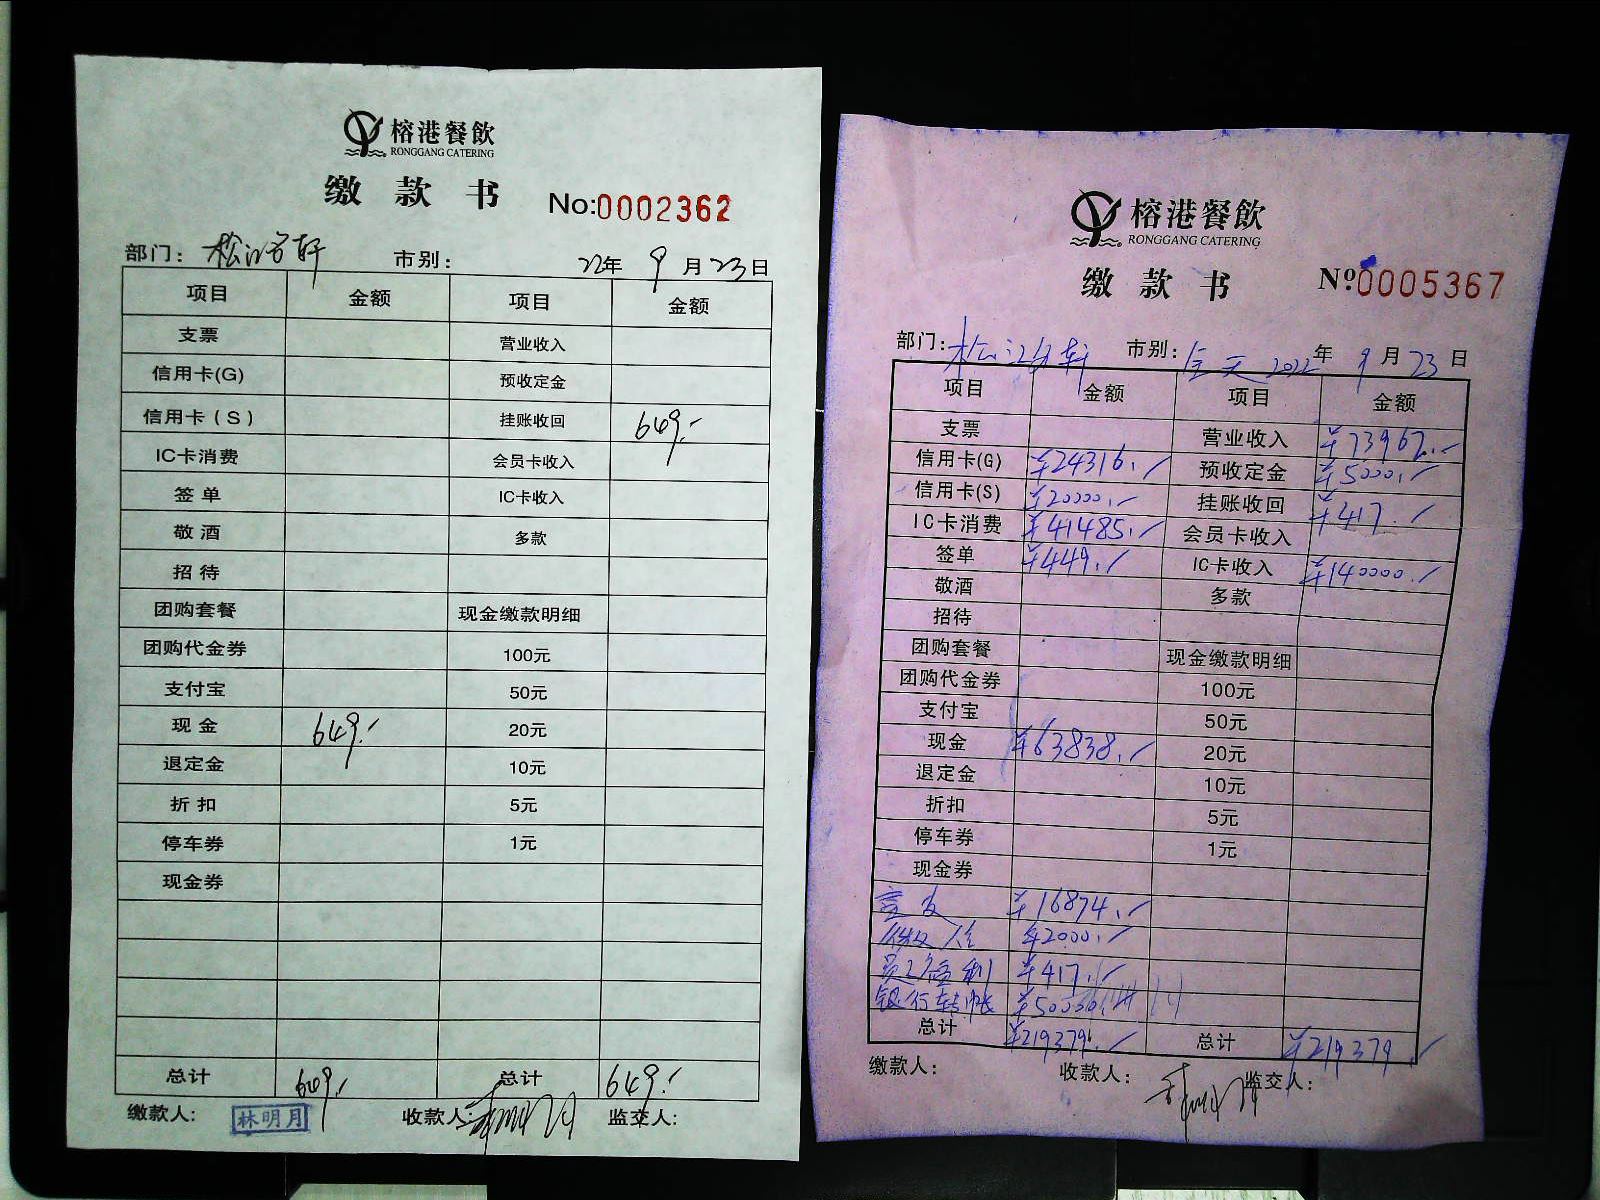 榕港餐飲
RONGGANG CATERING
缴款书 No:0002362
部门: 市别: 22年 9月23日
项目 金额 项目 金额
支票 营业收入
信用卡(G) 预收定金
信用卡(S) 挂账收回 649.-
IC卡消费 会员卡收入
签单 IC卡收入
敬酒 多款
招待
团购套餐 现金缴款明细
团购代金券 100元
支付宝 50元
现金 649.- 20元
退定金 10元
折扣 5元
停车券 1元
现金券
总计 649.- 总计 649.-
缴款人: 林明月 收款人: 监交人:
榕港餐飲
RONGGANG CATERING
缴款书 Nº0005367
部门: 市别: 全天 2022年 9月23日
项目 金额 项目 金额
支票 营业收入 ¥73962.-
信用卡(G) ¥24316.- 预收定金 ¥5000.-
信用卡(S) ¥20000.- 挂账收回 ¥417.-
IC卡消费 ¥41485.- 会员卡收入
签单 ¥449.- IC卡收入 ¥140000.-
敬酒 多款
招待
团购套餐 现金缴款明细
团购代金券 100元
支付宝 50元
现金 ¥63838.- 20元
退定金 10元
折扣 5元
停车券 1元
现金券
¥16874.-
¥2000.-
员工福利 ¥417.-
银行转帐 ¥50000.-
总计 ¥219379.- 总计 ¥219379.-
缴款人: 收款人: 监交人: